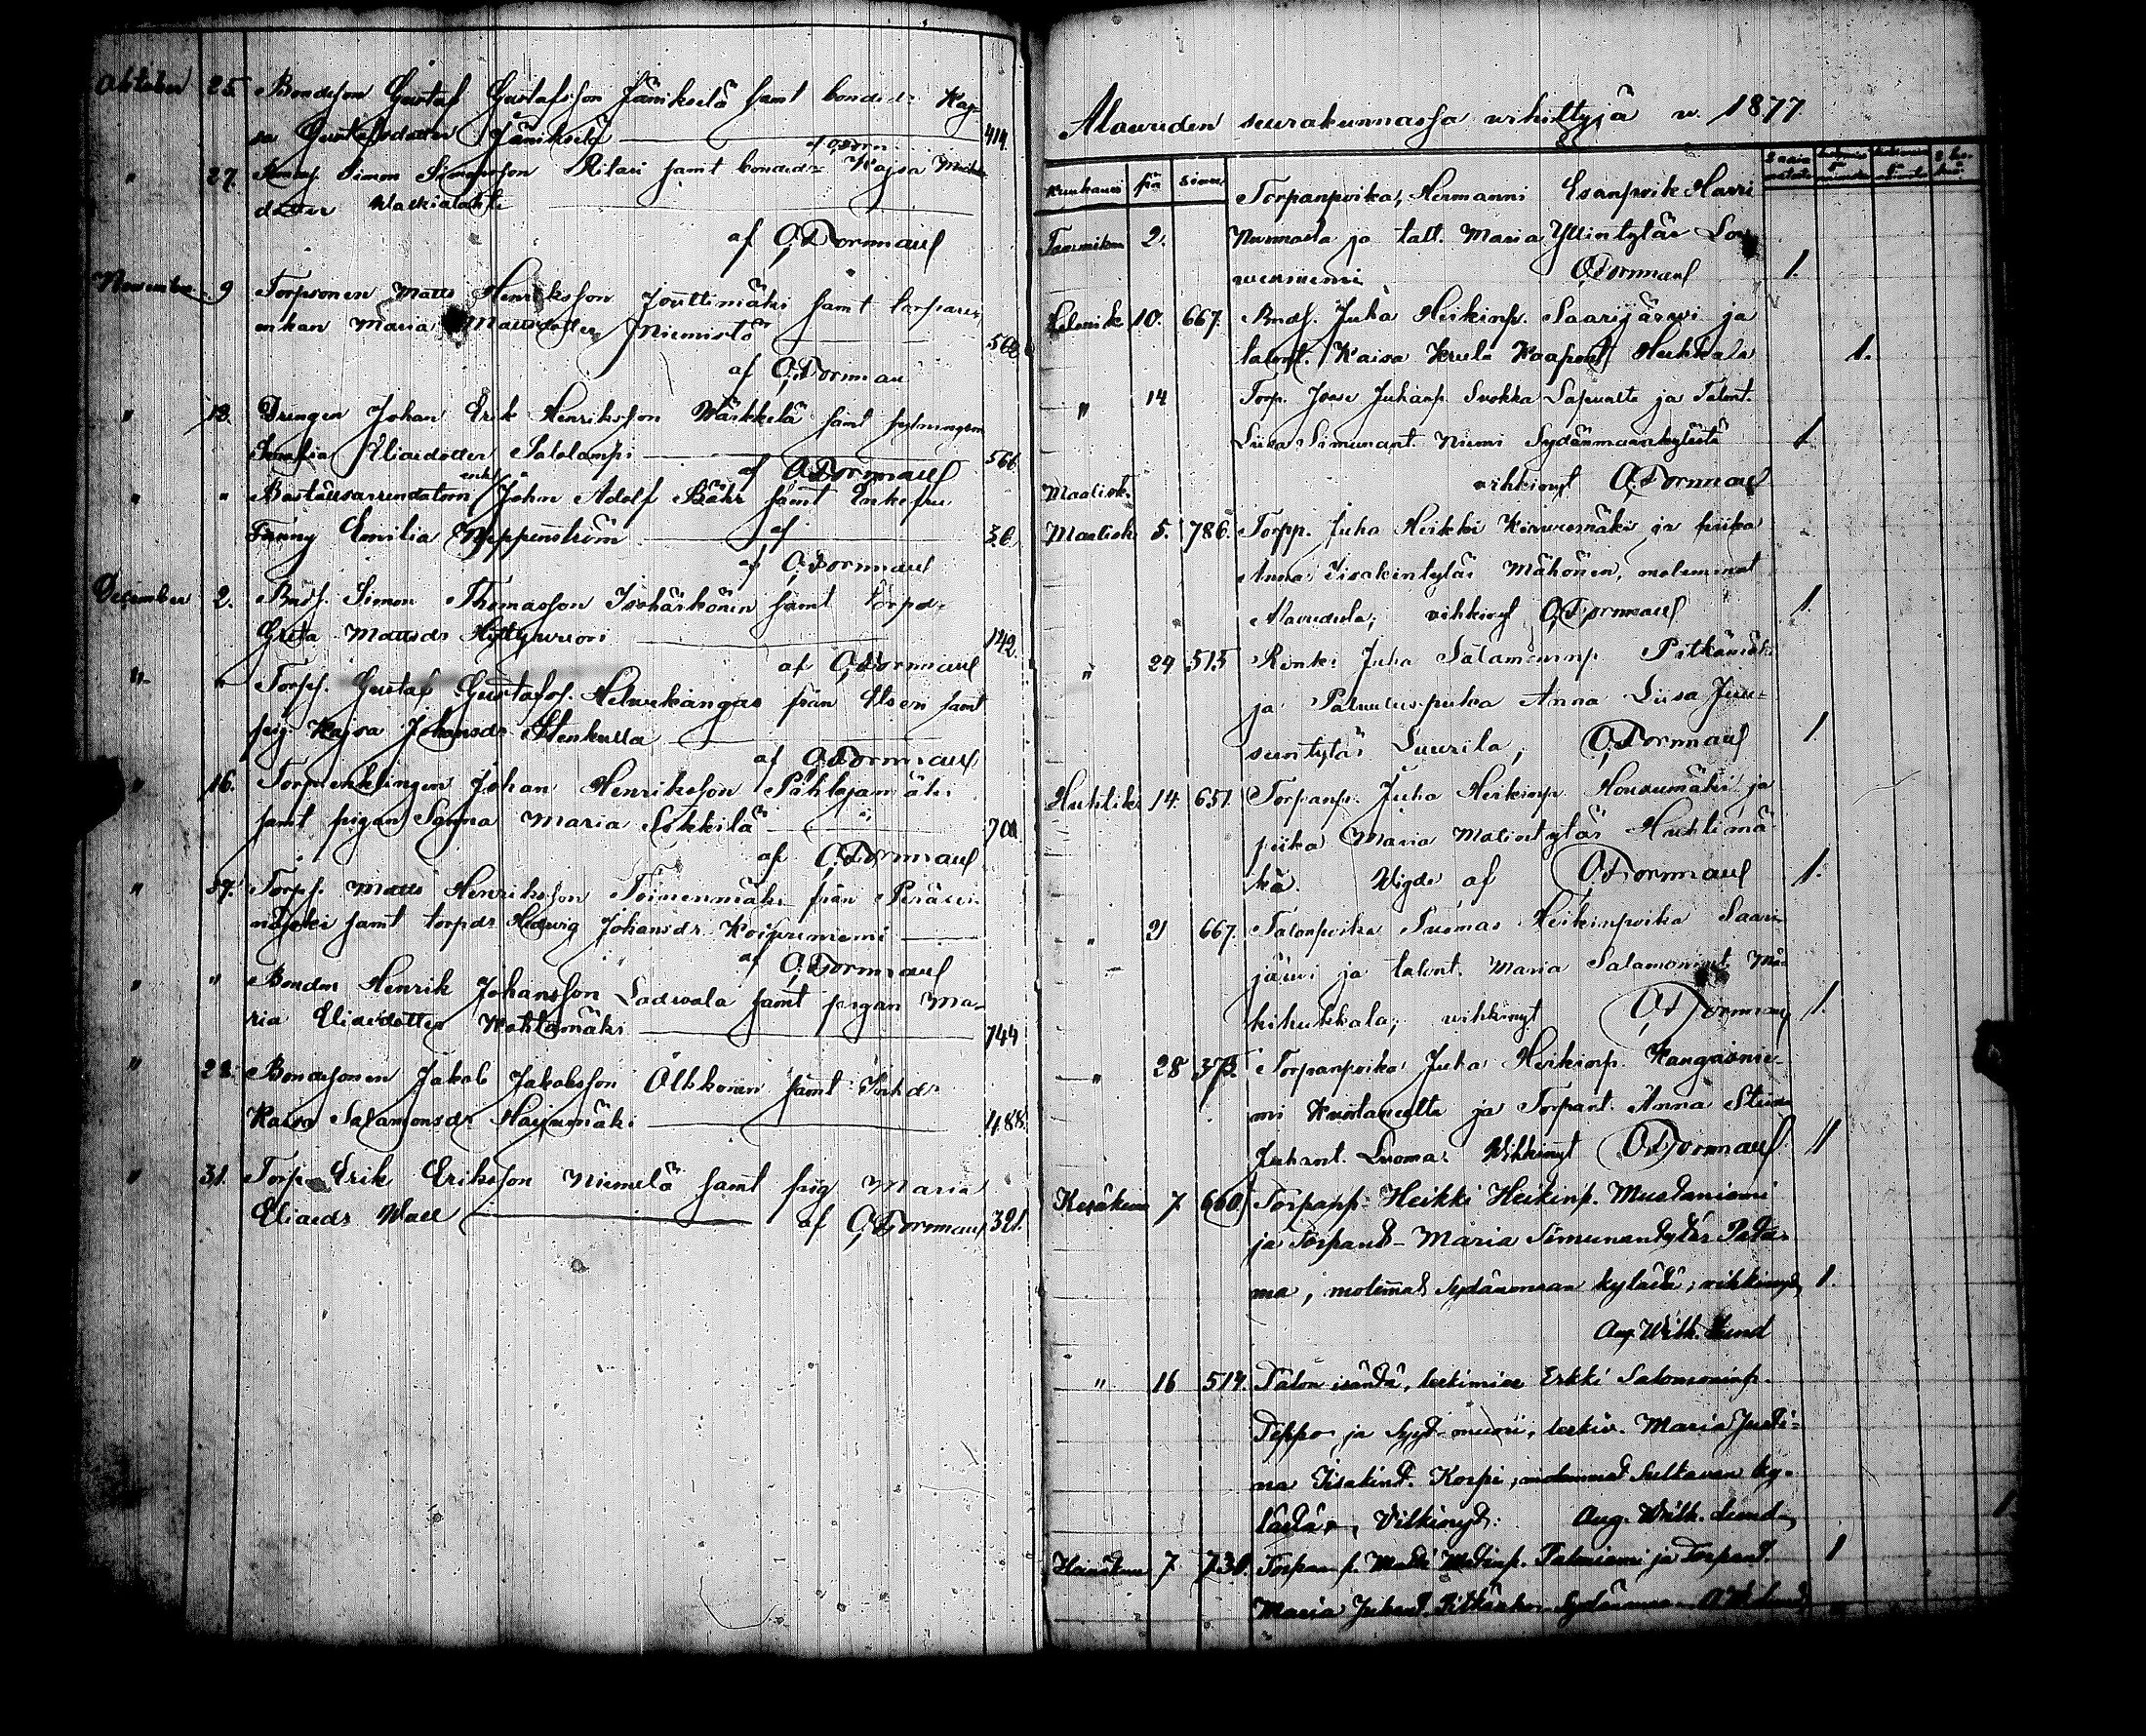 Oktober 25. Bondeson Gustaf Gustafsson Jänikselä samt bondedr Kaj-
sa Gustafsdotter Jänikselä 414
af O.Dorm
" 27. Simon Simonsson Ritari samt bondedr Kajsa Matts
dotter
af O,Dormaul
November 9 Torpsonen Matts Henriksson Jouttimäki samt torpare
enkan Maria Mattsdotter Niemistö 568
af O,Dorman
" 12. Drengen Johan Erik Henriksson Märkkelä samt
Serafia Eliaedotter Salolampi 566
af O,Dormaul
" " enkl. John Adolf Bähr samt Enkefru
Fanny Emilia Weppenström af 30
af O,Dormaul
December 2. Bndf. Simon Thomasson Isohärkönen samt torpd.
Greta Mattsdr Hyttysvuori 142.
af O,Dormaul
" " Torpf. Gustaf Gustafsf. från samt
pig. Kajsa Johansdr Stenkulla
af O,Dormaul
" 16. Torpenklingen Johan Henriksson Pahkajamäki
samt pigan Sanna Maria Sokkilä 700
af O,Dormaul
" 27. Torpf. Matts Henriksson Toimenmäki från Peräsei-
näjoki samt torpdr Hedvig Johansdr Koivuniemi
af O,Dormaul
" " Bonden Henrik Johansson Ladvala samt pigan Ma-
ria Eliaedotter Kohtamäki 744
" 28. Bondesonen Jakob Jakobsson Ölkkonen samt
Kaisa Salamonsdr Harjumäki 488.
" 31. Torp Erik Eriksson Niemelä samt pig Maria
Eliaedr Wall af O,Dormaul 321.
Alavuden seurakunnassa vihittyjä v. 1877
Kuukausi pä
Tammikuu 2. Torpanpoika, Hermanni Esanpoik Harri
Nurmosta ja talt. Maria Yllintytär Lou
O,Dormaul 1.
Helmik 10. 667. Bndf. Juha Heikinp. Saarijärvi ja
talont. Kaisa Kaapont. Huhkala 1.
" 14 Torp. Juhanp. Luokka Lapualta ja Talont.
Liisa Simunant. Niemi Sydänmaankylästä 1
vihkinyt O,Dormaul
Maalisk.
Maalisk 5. 786. Torpp. Juha Heikki Kivuesmäki ja piika
Anna Iisakintytär Mähönen, molemmat
Alavudelta; vihkinyt O,Dormaul 1.
" 24 515 Renki Juha Salamoninp Pitkämäki
ja Palveluspiika Anna Liisa Juu-
suntytär Luurila, O,Dormaul 1.
Huhtik. 14. 651. Torpanp. Juha Heikinp. Housumäki ja
piika Maria Matintytär Huhtimä-
ki. Wigde af O,Dormaul 1.
" 21 667. Talonpoika Tuomas Heikinpoika Saari-
järvi ja talont. Maria Salamonint. Mä-
kihukkala; vihkinyt O,Dormaul 1.
" 28 373. Torpanpoika Juha Heikinp. Kangasnie-
mi Kuortaneelta ja Torpant. Anna Stiina
Juhant. Luoma. Vihkinyt O,Dormaul 1
Kesäkuu 7 660. Torpanp. Heikki Heikinp. Mustaniemi
ja Torpant. Maria Simunantytär Pata-
ma, molemat Sydänmaan kylästä; vihkinyt 1.
Aug. Wilh. Lund
" 16 514. Talon isäntä, leskimies Erkki Salomoninp.
Teppo ja Syyt. muori, leskiv. Maria Justi-
na Iisakint. Korpi, molemmat Sulkavan ky-
lästä, Vihkinyt: Aug. Wilh. Lund 1
Heinäkuu 7 730. Torpan p. Matti Matinp. Talniemi ja Torpant. 1
Maria Juhant. Sydänmaa A W Lund